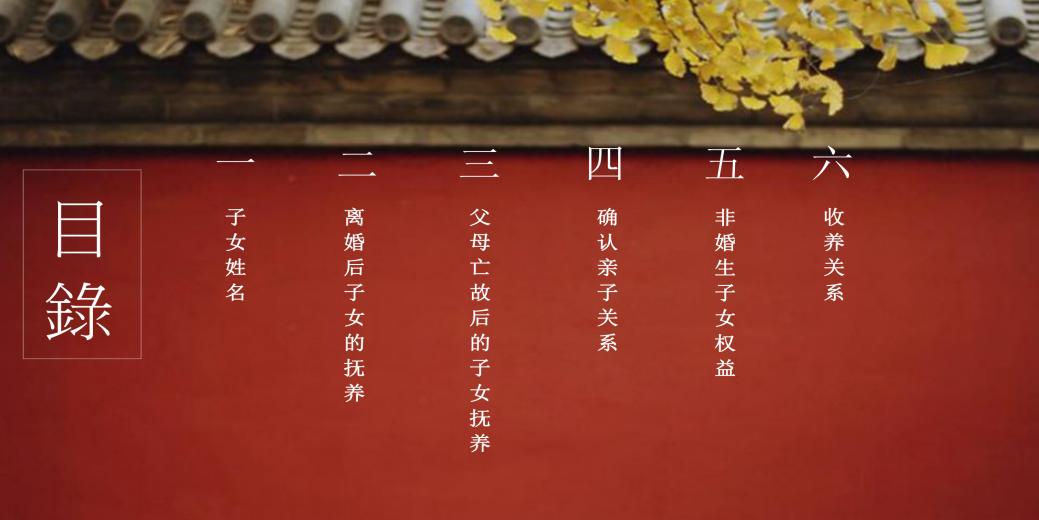 目錄
一
子女姓名
二
离婚后子女的抚养
三
父母亡故后的子女抚养
四
确认亲子关系
五
非婚生子女权益
六
收养关系